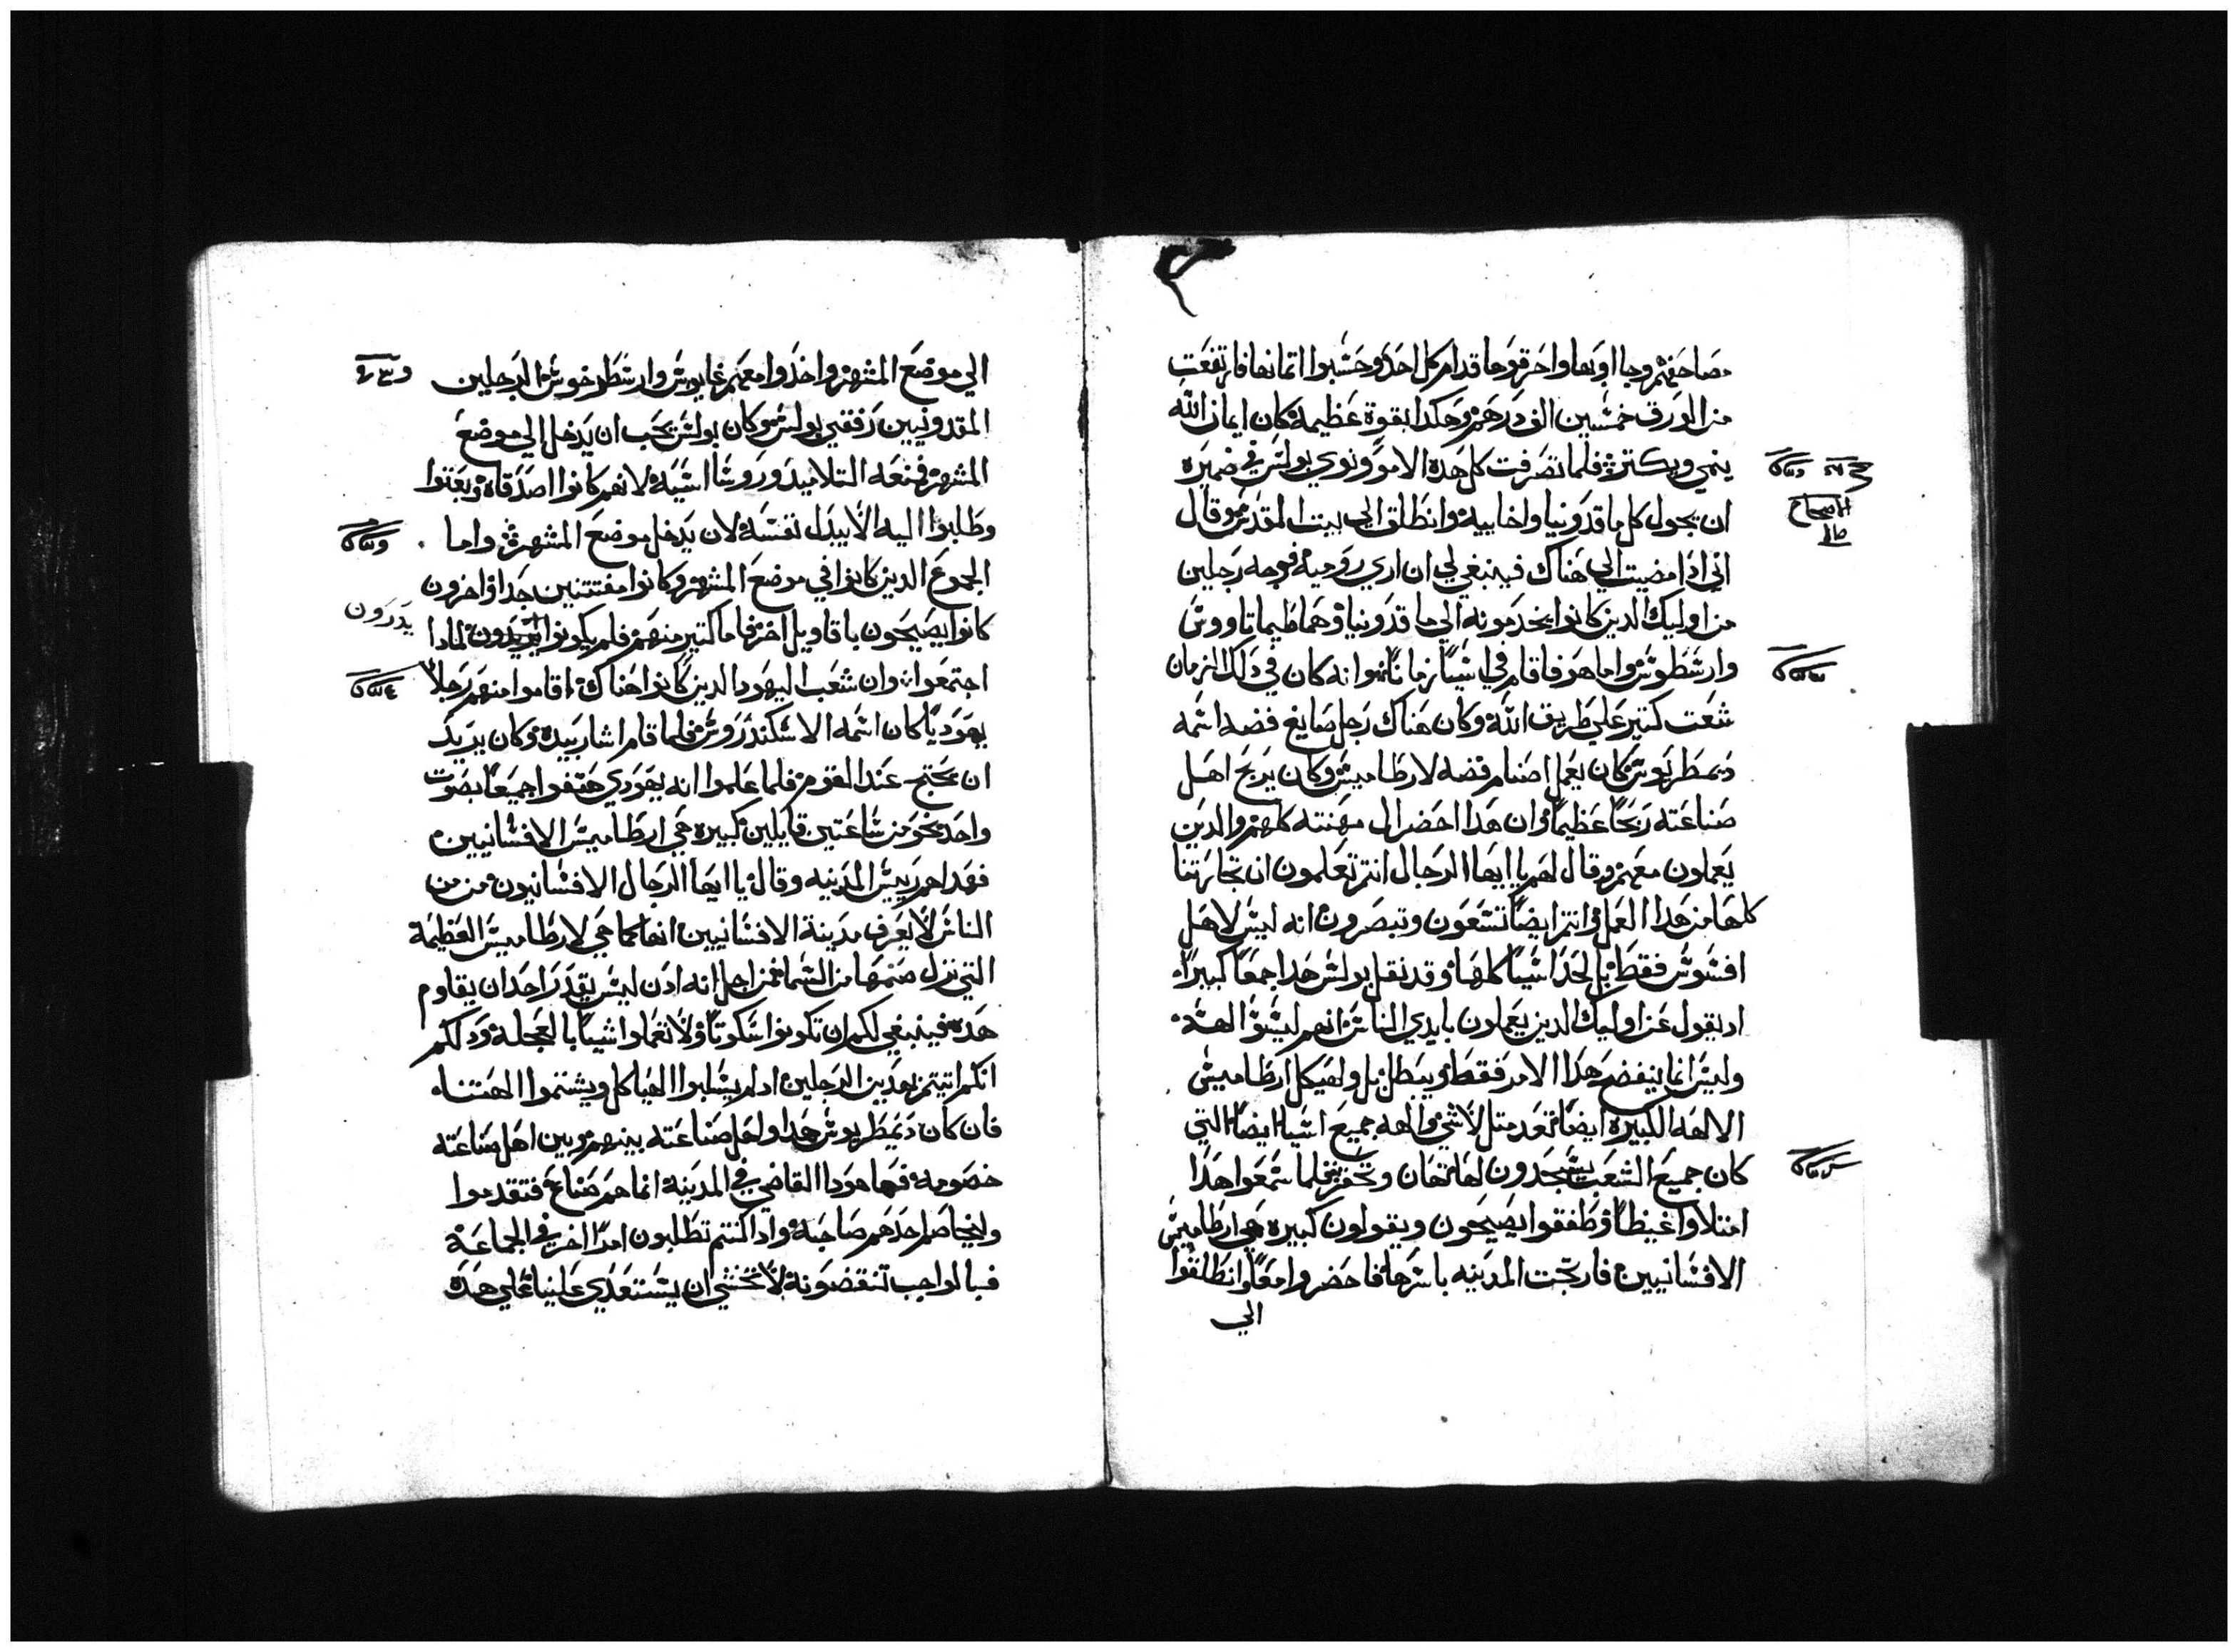 مصاحفهم وجااوبها واحرقوها قدام كل احد وحسبوا اتمانها فارتفعت
من الورق خمسين الف درهم وهكدا بقوة عظيمة كان ايمان الله
ينمي ويكتر فلما تصرفت كل هده الامور ونوي بولس في ضميره
ان يجول كل ماقدونيا واخاييه وانطلق الي بيت المقدس وقال
اني ادا مضيت الي هناك فينبغي لي ان اري روميه فوجه رجلين
من اوليك الدين كانوا يخدمونه الي ماقدونيا وهما طيماتاووس
وارسطوس واما هو فاقام في اسيا زمانا وانه كان في دلك الزمان
شعت كتير علي طريق الله وكان هناك رجل صايغ فضه اسمه
ديمطريوس كان يعمل اصنام فضه لارطاميس وكان يربح اهل
صناعته ربحا عظيما وان هدا احضر ال مهنته كلهم والدين
يعملون معهم وقال لهم يا ايها الرجال انتم تعلمون ان تجارتنا
كلها من هدا العمل وانتم ايضا تسعون وتبصرون انه ليس لاهل
افسوس فقط بل لحد اسيا كلها وقد نقل بولس هدا جمعا كبيرا
اد يقول عن اوليك الدين يعملون بايدي الناس انهم ليسوا الهة
وليس انما يفضح هدا الامر فقط ويبطل بل ولهيكل ارطاميس
الالهه الكبيره ايضا تعد متل لاشي والهه جميع اسيا ايضا التي
كان جميع الشعب يسجدون لها تهان وتحقر فلما سمعوا هدا
امتلاوا غيظا وطفقوا يصيحون ويقولون كبيره هي ارطاميس
الافسانيين فارتجت المدينه باسرها فاحضروا معا وانطلقوا
الي
الاصحاح
الي موضع المشهر واخدوا معهم غايوس وارسطرخوس الرجلين
المقدونيين رفقتي بولس وكان بولس يحب ان يدخل الي موضع
المشهر فمنعه التلاميد وروسا اسيه لانهم كانوا اصدقاه وبعتوا
وطلبوا اليه الا يبدل نفسه لان يدخل موضع المشهر واما
الجموع الدين كانوا في موضع المشهر وكانوا مفتتنين جدا واخرون
كانوا يصيحون باقاويل اخر فاما كتير منهم فلم يكونوا يدرون لمادا
يدرون
اجتمعوا وان شعب اليهود الدين كانوا هناك اقاموا منهم رجلا
يهوديا كان اسمه الاسكندروس فلما قام اشار بيده وكان يريد
ان يحتج عند القوم فلما علموا انه يهودي هتفوا جميعا بصوت
واحد نحو من ساعتين قايلين كبيره هي ارطاميس الافسانيين
فهداهم رييس المدينه وقال يا ايها الرجال الافسانيون من من
الناس لا يعرف مدينة الافسانيين انها كما هي لارطاميس العظيمة
التي نزل صنمها من السما فمن اجل انه ادن ليس يقدر احد ان يقاوم
هده فينبغي لكم ان تكونوا سكوتا ولا تعملوا شيا بالعجلة ودلكم
انكم اتيتم بهدين الرجلين اد لم يسلبوا الهياكل ويشتموا الهتنا
فان كان ديمطريوس هدا واهل صناعته بينهم وبين اهل صناعته
خصومه فها هودا القاضي في المدينة انما هم صناع فتقدموا
وليخاصم احدهم صاحبه وادا كنتم تطلبون امرا اخر في الجماعة
فبالواجب تنقضونة لانخشي ان يستعدي علينا علي هده